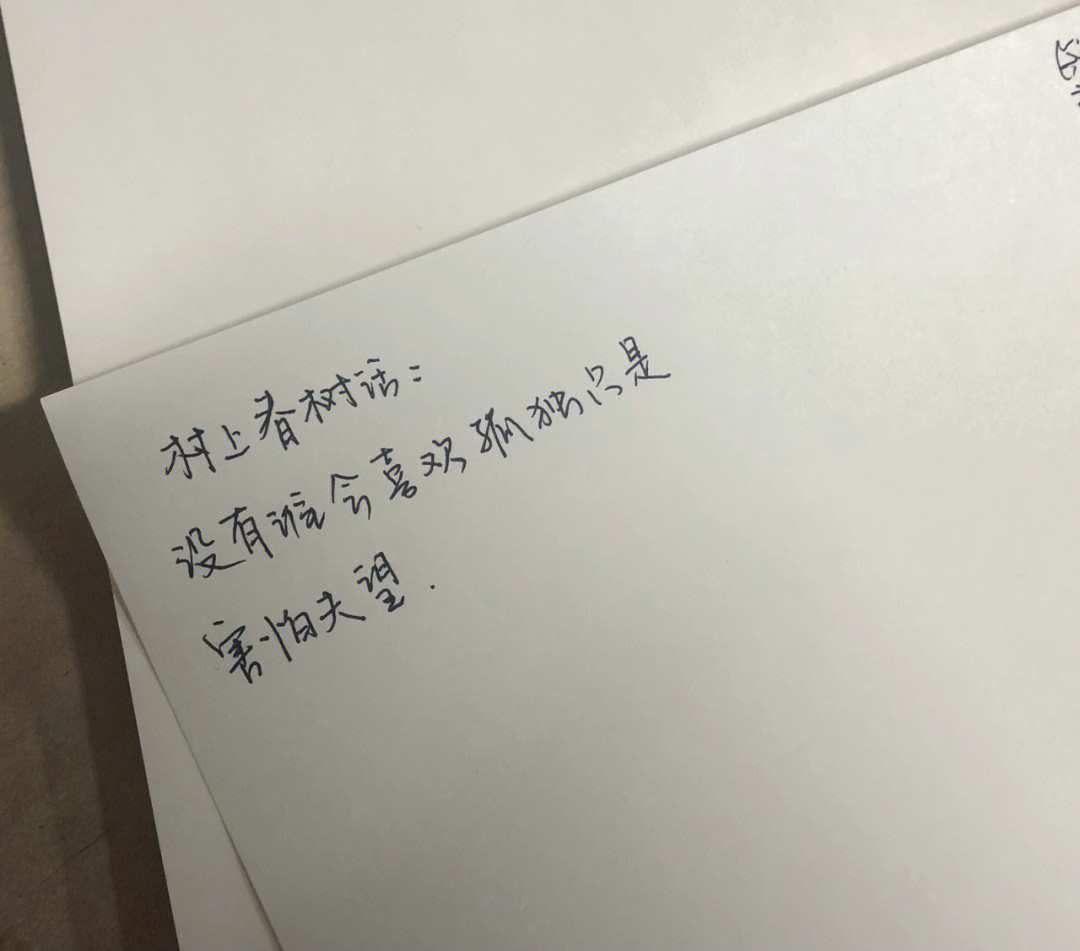 村上春树话：
没有谁会喜欢孤独只是
害怕失望.